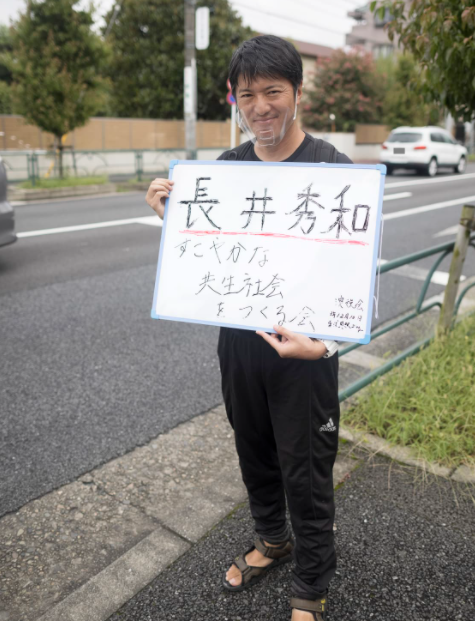 長井秀和
すこやかな
共生社会
をつくる会
adidas